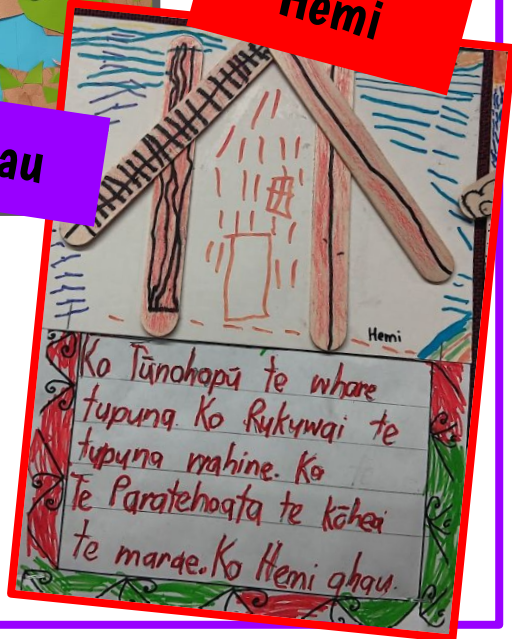 Hemi
au
Hemi
Ko Tūnohopū te whare
tupuna. Ko Rukuwai te
tupuna mahine. Ko
Te Paratehoata te kōhea
te marae. Ko Hemi ahau.